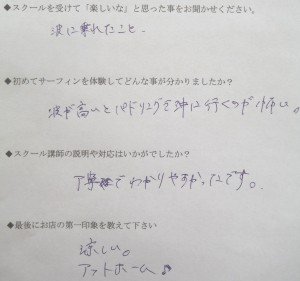 ◆スクールを受けて「楽しいな」と思った事をお聞かせください。
波に乗れたこと。
◆初めてサーフィンを体験してどんな事が分かりましたか？
波が高いとパドリングで沖に行くのが難しい。
◆スクール講師の説明や対応はいかがでしたか？
丁寧でわかりやすかったです。
◆最後にお店の第一印象を教えて下さい
涼しい。
アットホーム♪